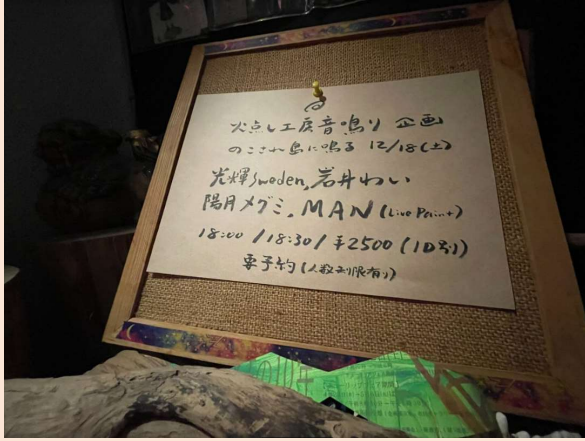 火点し工房音鳴り 企画
のこされ島に鳴る 12/18(土)
光輝Sweden,岩井わい
陽月メグミ,MAN(Live Paint)
18:00 /18:30/ ¥2500 (1D別)
要予約(人数制限有り)